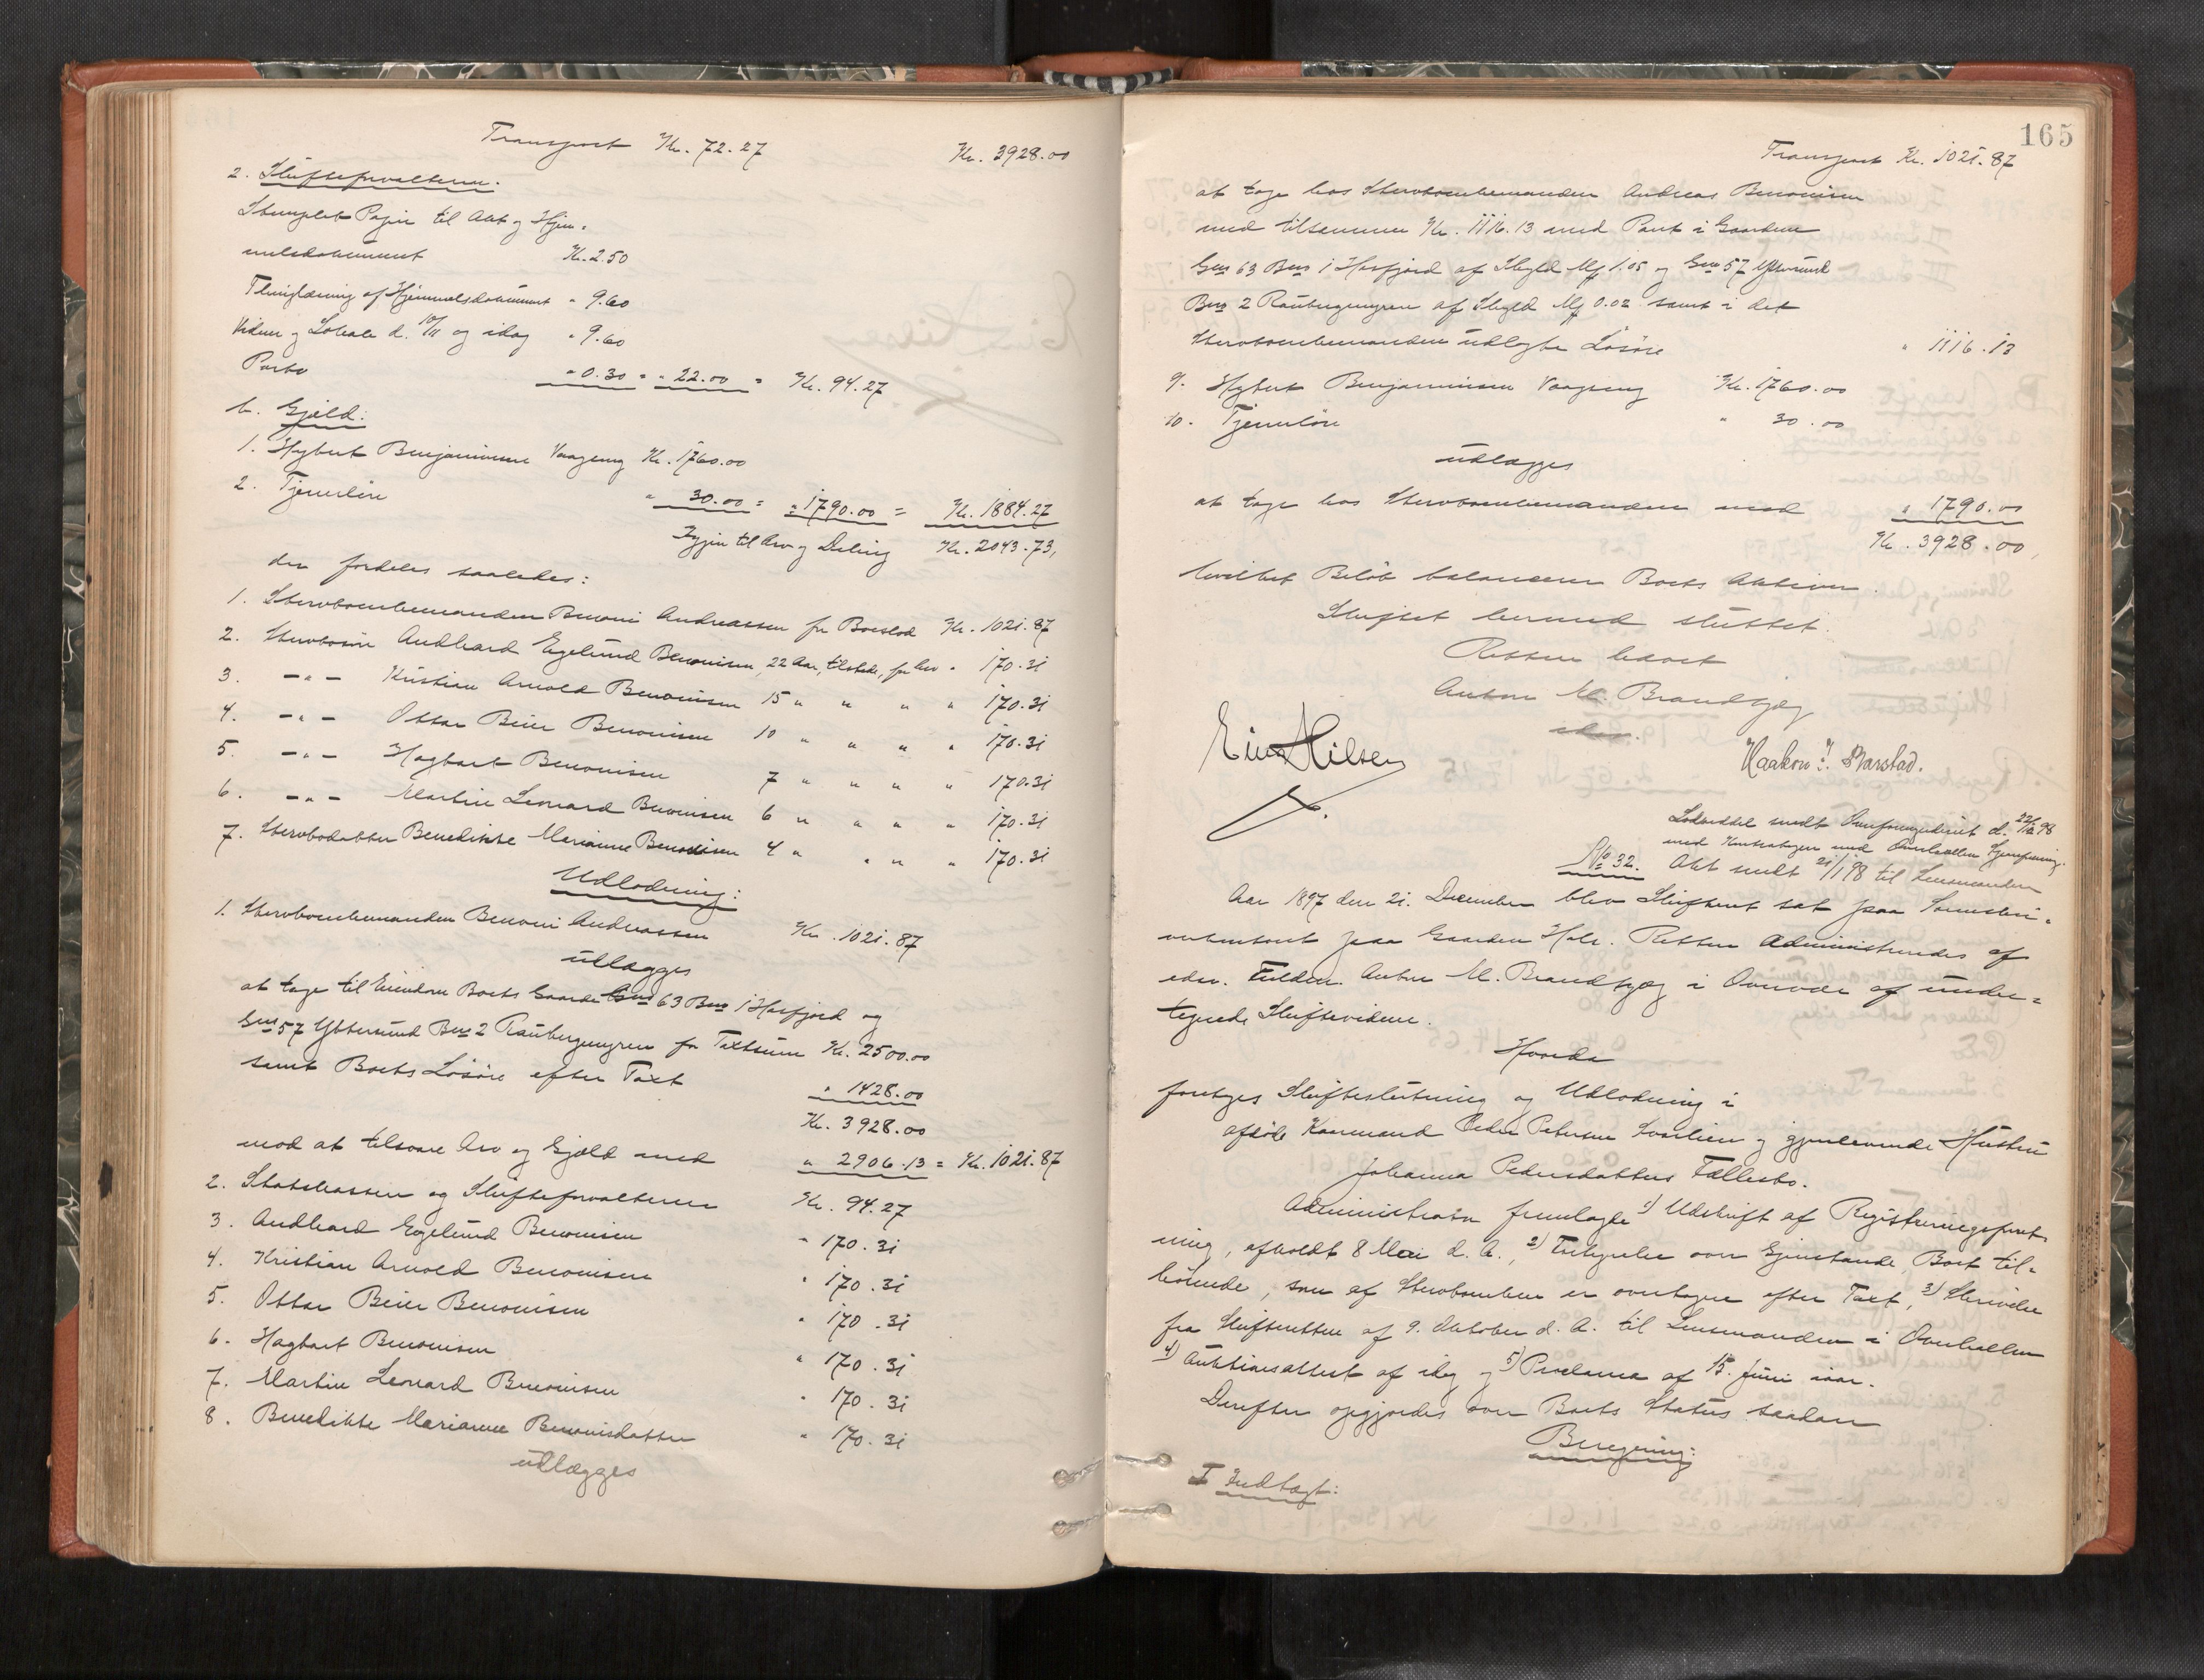 Transport Kr. 72.27 Kr. 3928.00
2. Skifteforvalteren.
Stemplet Papir til Akt og Hjem-
melsdokument Kr. 2.50
Thinglæsning af Hjemmelsdokument " 9.60
Vidner og Lokale d. 10/11 og idag " 9.60
Porto " 0.30 = " 22.00 = Kr. 94.27
b. Gjæld:
1. Hybert Benjaminsen Vaageng Kr. 1760.00
2. Tjenerløn " 30.00 = " 1790.00 = Kr. 1884.27
Igjen til Arv og Deling Kr. 2043.73,
der fordeles saaledes:
1. Stervboenkemanden Benoni Andreassen for Boeslod Kr. 1021.87
2. Stervbosøn Audhard Egelund Benonisen, 22 Aar, tilstede, for Arv " 170.31
3. -"- Kristian Arnold Benonisen 15 " " " " 170.31
4. -"- Ottar Beier Benonisen 10 " " " " 170.31
5. -"- Hagbart Benonisen 7 " " " " 170.31
6. -"- Martin Leonard Benonisen 6 " " " " 170.31
7. Stervbodatter Benedikte Marianne Benonisen 4 " " " " 170.31
Udlodning:
1. Stervboenkemanden Benoni Andreassen Kr. 1021.87
udlægges
at tage til Eiendom Boets Gaarde Gno 63 Bno 1 Horfjord og
Gno 57 Yttersund Bno 2 Raubergmyren for Taxtsum Kr. 2500.00
samt Boets Løsøre efter Taxt " 1428.00
Kr. 3928.00
mod at tilsvare Arv og Gjæld med " 2906.13 = Kr. 1021.87
2. Statskassen og Skifteforvalteren Kr. 94.27
3. Audhard Egelund Benonisen " 170.31
4. Kristian Arnold Benonisen " 170.31
5. Ottar Beier Benonisen " 170.31
6. Hagbart Benonisen " 170.31
7. Martin Leonard Benonisen " 170.31
8. Benedikte Marianne Benonisdatter " 170.31
udlægges
165
Transport Kr. 1021.87
at tage hos Stervboenkemanden Andreas Benonisen
med tilsammen Kr. 1116.13 med Pant i Gaardene
Gno 63 Bno 1 Horfjord af Skyld Mk 1.05 og Gno 57 Yttersund
Bno 2 Raubergmyren af Skyld Mk 0.02 samt i det
Stervboenkemanden udlagte Løsøre " 1116.13
9. Hybert Benjaminsen Vaageng Kr. 1760.00
10. Tjenerløn " 30.00
udlægges
at tage hos Stervboenkemanden med " 1790.00
Kr. 3928.00,
hvilket Beløb balancerer Boets Aktiva.
Skiftet hermed sluttet.
Retten hævet
Anton M. Brandtzæg
Haakon Barstad.
Lodseddel sendt Overformynderiet d. 22/12 98
No 32. Akt sendt 21/1 98 til Lensmanden
Aar 1897 den 21. December blev Skifteret sat paa Sorenskri-
verkontoret paa Gaarden Hals. Retten administreredes af
edsv. Fuldm. Anton M. Brandtzæg i Overvær af under-
tegnede Skiftevidner.
Hvorda
foretoges Skifteslutning og Udlodning i
afdøde Kaarmand Peder Petersen Svarlien og gjenlevende Hustru
Johanna Pedersdatters Fællesbo.
Administrator fremlagde 1) Udskrift af Registreringsforret-
ning, afholdt 8 Mai d. A., 2) Fortegnelse over Gjenstande, Boet til-
hørende, som af Stervboenken er overtagne efter Taxt, 3) Skrivelse
fra Skifteretten af 9. Oktober d. A. til Lensmanden i Overhallen
4) Auktionsattest af idag og 5) Proclama af 15. Juni iaar.
Derefter opgjordes over Boets Status saadan
Beregning:
I Indtægt: